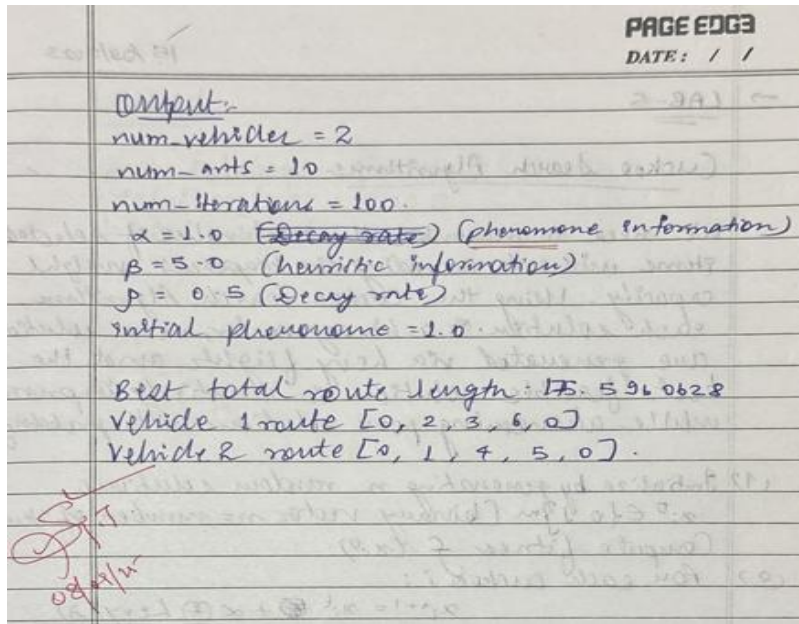 PAGE EDGE
DATE: / /
Output:-
num_vehicles = 2
num_ants = 10
num_iterations = 100.
α = 1.0 (Decay rate) (pheromone information)
β = 5.0 (heuristic information)
ρ = 0.5 (Decay rate)
initial pheronome = 1.0.
Best total route length: 175.5960628
Vehicle 1 route [0, 2, 3, 6, 0]
Vehicle 2 route [0, 1, 4, 5, 0].